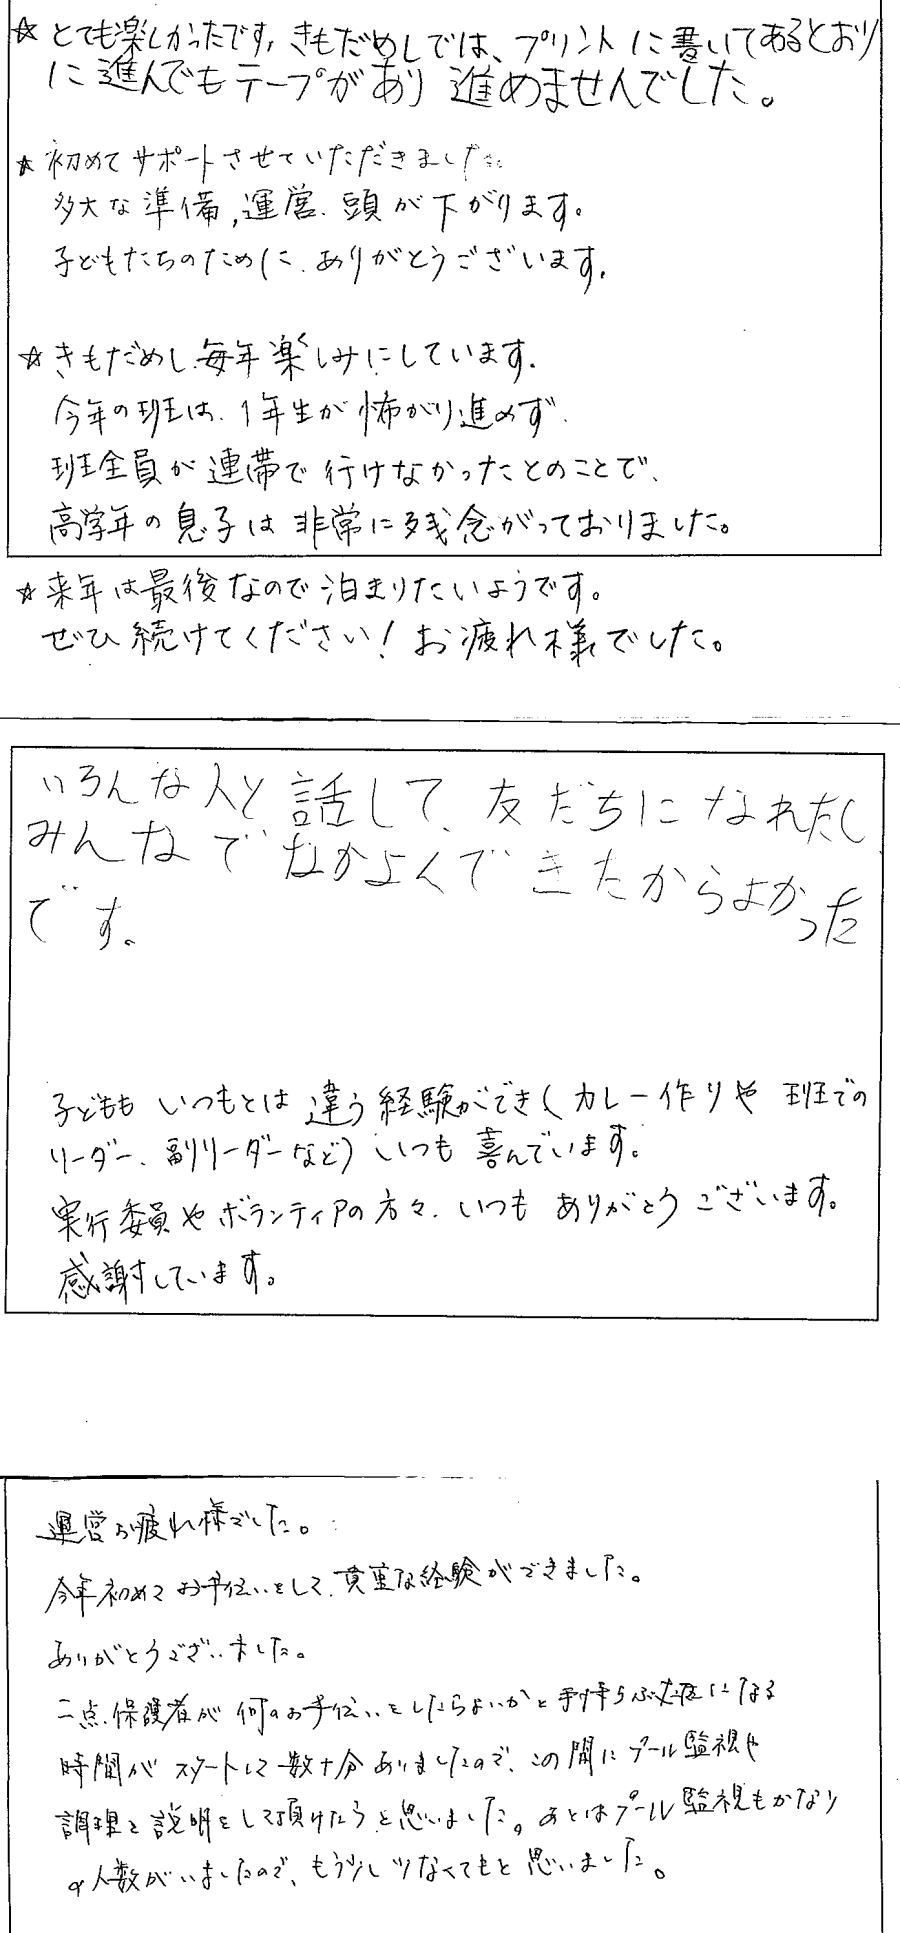 ☆ とても楽しかったです, きもだめしでは、プリントに書いてあるとおり
に進んでもテープがあり 進めませんでした。
☆ 初めてサポートさせていただきました。
多大な準備,運営、頭が下がります。
子どもたちのために、ありがとうございます。
☆ きもだめし、毎年楽しみにしています.
今年の班は、1年生が怖がり進めず、
班全員が連帯で行けなかったとのことで、
高学年の息子は非常に残念がっておりました。
☆ 来年は最後なので泊まりたいようです。
ぜひ続けてください! お疲れ様でした。
いろんな人と話して、友だちになれたし
みんなでなかよくできたからよかった
です。
子どもも いつもとは 違う経験ができ(カレー作りや 班での
リーダー、副リーダーなど) いつも 喜んでいます。
実行委員やボランティアの方々、いつも ありがとうございます。
感謝しています。
運営お疲れ様でした。
今年初めてお手伝いをして、貴重な経験ができました。
ありがとうございました。
二点、保護者が 何のお手伝いをしたらよいかと手持ちぶたさになる
時間が スタートして数十分ありましたので、この間にプール監視や
調理の説明をして頂けたらと思いました。あとはプール監視もかなり
の人数がいましたので、もう少し少なくてもと思いました。